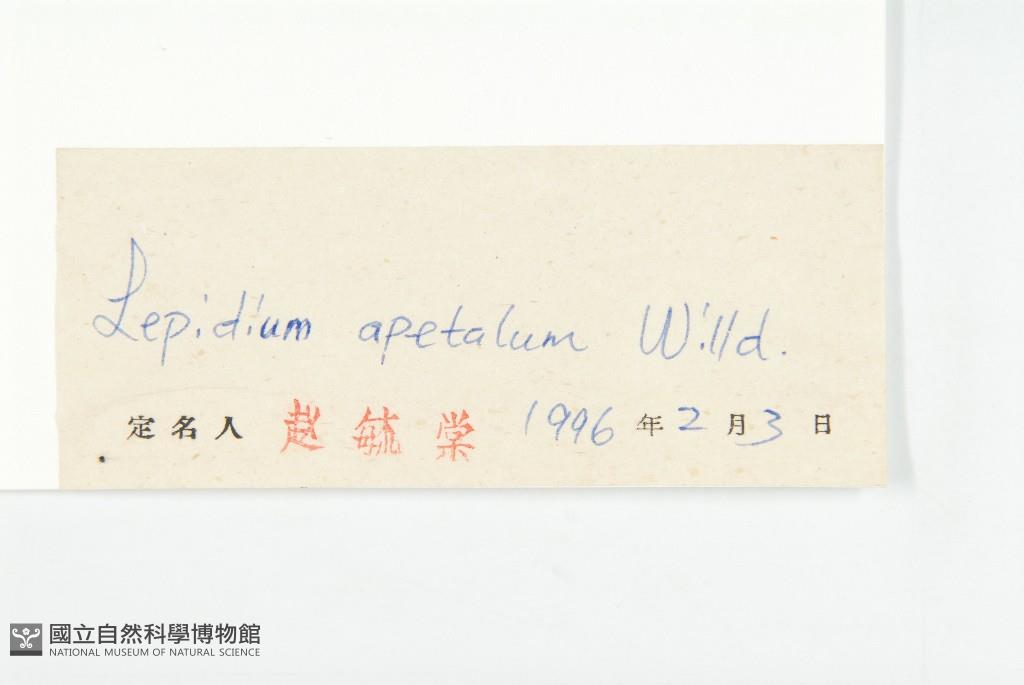 Lepidium apetalum Willd.
定名人 赵毓棠 1996年2月3日
國立自然科學博物館
NATIONAL MUSEUM OF NATURAL SCIENCE